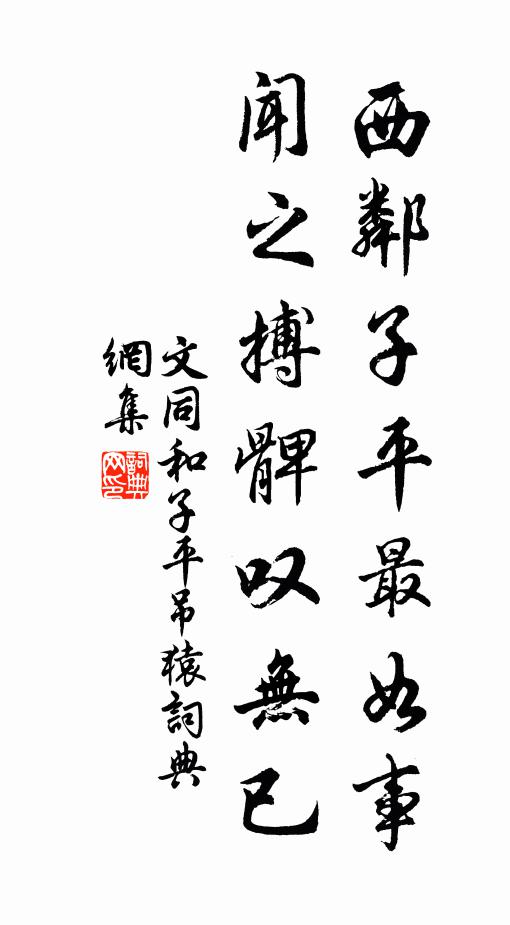 西鄰子平最如事
聞之搏髀叹無已
文同和子平吊猿詞典
網集
詞典網印